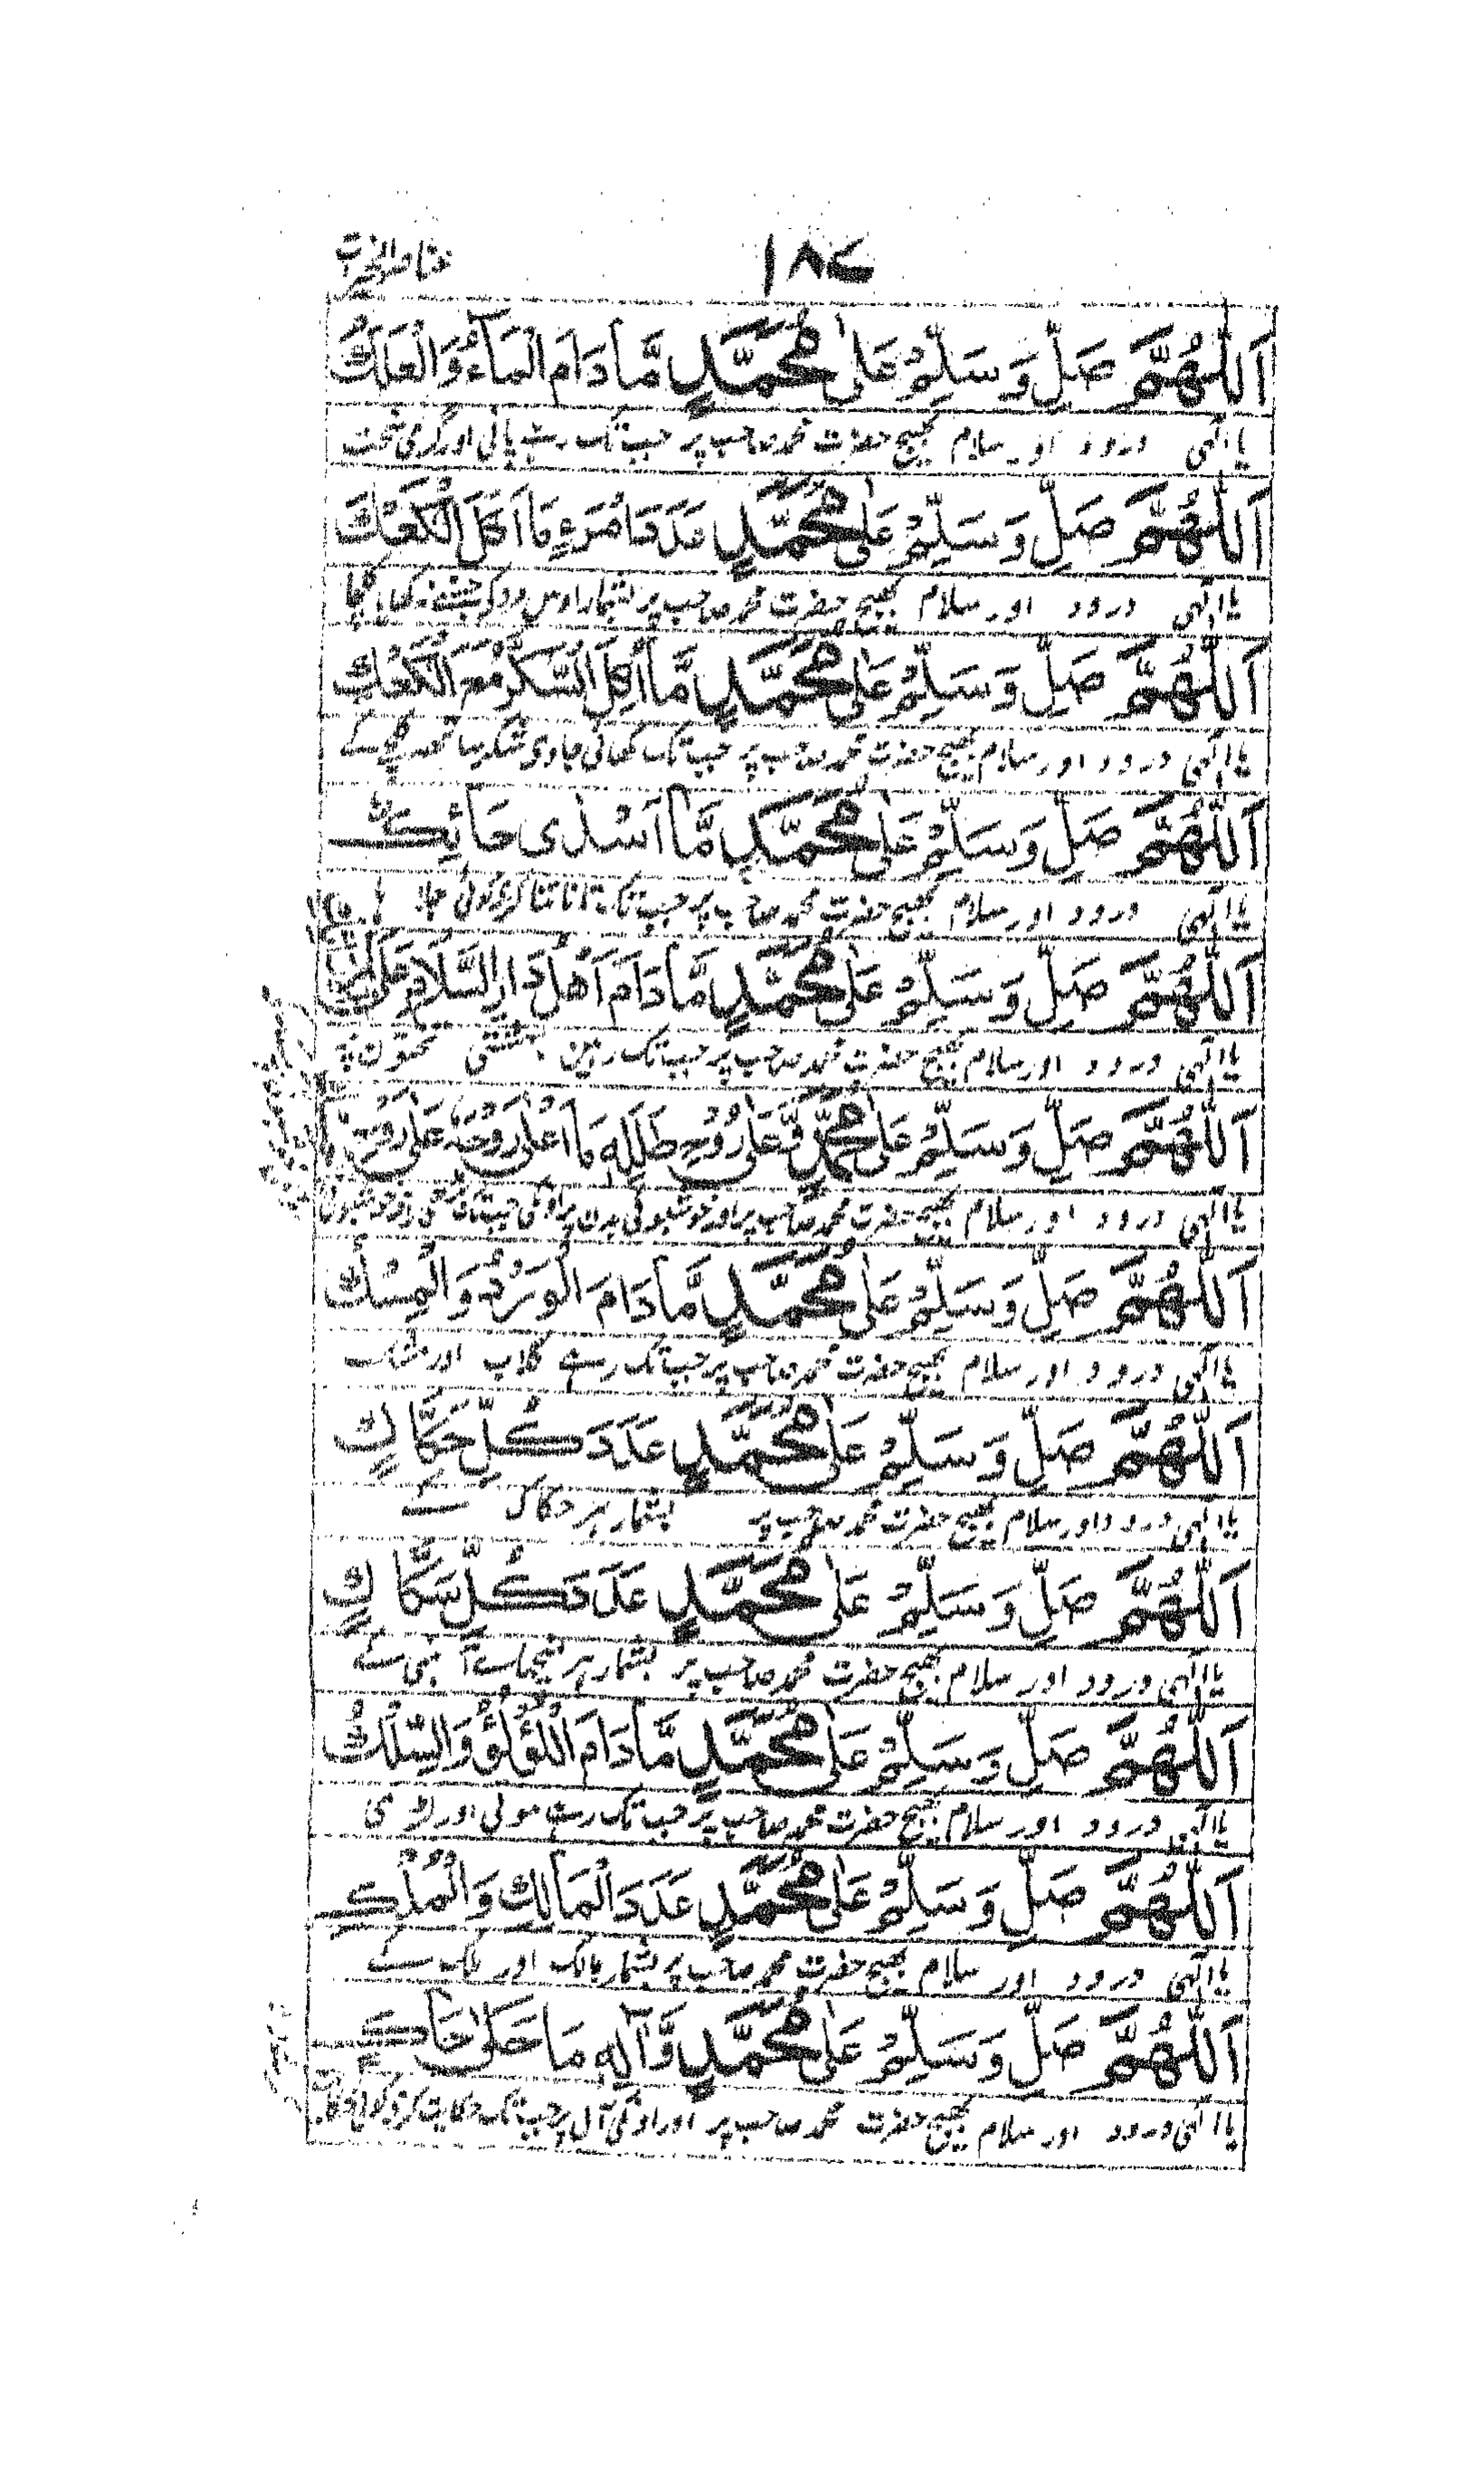 ۱۸۷
عناصر الخيرات
اَللّٰهُمَّ صَلِّ وَسَلِّمْ عَلٰى مُحَمَّدٍ مَّا دَامَ الْمَآءُ وَالْعَلَكُ
یا الٰہی درود اور سلام بھیج حضرت محمد صاحب پر جب تک رہے پانی اور
اَللّٰهُمَّ صَلِّ وَسَلِّمْ عَلٰى مُحَمَّدٍ مَا اَكَلَ الْكَعْكَ
یا الٰہی درود اور سلام بھیج حضرت محمد صاحب پر بشمار اوس مرد کے جسنے کھایا
اَللّٰهُمَّ صَلِّ وَسَلِّمْ عَلٰى مُحَمَّدٍ مَّا اُكِلَ السُّكَّرُ مَعَ الْكَعْكِ
یا الٰہی درود اور سلام بھیج حضرت محمد صاحب پر جب تک کھائی جاوی شکر ساتھ کے
اَللّٰهُمَّ صَلِّ وَسَلِّمْ عَلٰى مُحَمَّدٍ مَّا اَسْدٰى حَائِكٌ
یا الٰہی درود اور سلام بھیج حضرت محمد صاحب پر جب تک تانا تنا کرے کوئی
اَللّٰهُمَّ صَلِّ وَسَلِّمْ عَلٰى مُحَمَّدٍ مَّا دَامَ اَهْلُ دَارِ السَّلَامِ عَلَى
یا الٰہی درود اور سلام بھیج حضرت محمد صاحب پر جب تک رہین بہشتی تختون پہ
اَللّٰهُمَّ صَلِّ وَسَلِّمْ عَلٰى مُحَمَّدٍ وَّعَلٰى رُوْحِ مَا
یا الٰہی درود اور سلام بھیج حضرت محمد صاحب پر اور خوشبوئی بدن پر اونکی جب تک
اَللّٰهُمَّ صَلِّ وَسَلِّمْ عَلٰى مُحَمَّدٍ مَّا دَامَ الْوَرْدُ وَالْمِسْكُ
یا الٰہی درود اور سلام بھیج حضرت محمد صاحب پر جب تک رہے گلاب اور مشک
اَللّٰهُمَّ صَلِّ وَسَلِّمْ عَلٰى مُحَمَّدٍ عَدَدَ كُلِّ حَكَّاكٍ
یا الٰہی درود اور سلام بھیج حضرت محمد صاحب پر بشمار ہر حکاک کے
اَللّٰهُمَّ صَلِّ وَسَلِّمْ عَلٰى مُحَمَّدٍ عَدَدَ كُلِّ سَكَّاكٍ
یا الٰہی درود اور سلام بھیج حضرت محمد صاحب پر بشمار ہر کے
اَللّٰهُمَّ صَلِّ وَسَلِّمْ عَلٰى مُحَمَّدٍ مَّا دَامَ اللُّؤْلُؤُ وَالسِّلْكُ
یا الٰہی درود اور سلام بھیج حضرت محمد صاحب پر جب تک رہے موتی اور لڑی
اَللّٰهُمَّ صَلِّ وَسَلِّمْ عَلٰى مُحَمَّدٍ عَدَدَ الْمَالِكِ وَالْمُلْكِ
یا الٰہی درود اور سلام بھیج حضرت محمد صاحب پر بشمار مالک اور ملک کے
اَللّٰهُمَّ صَلِّ وَسَلِّمْ عَلٰى مُحَمَّدٍ وَّاٰلِهٖ مَا حَكٰى حَاكٍ
یا الٰہی درود اور سلام بھیج حضرت محمد صاحب پر اور اونکی آل پر جب تک حکایت کرے کوئی